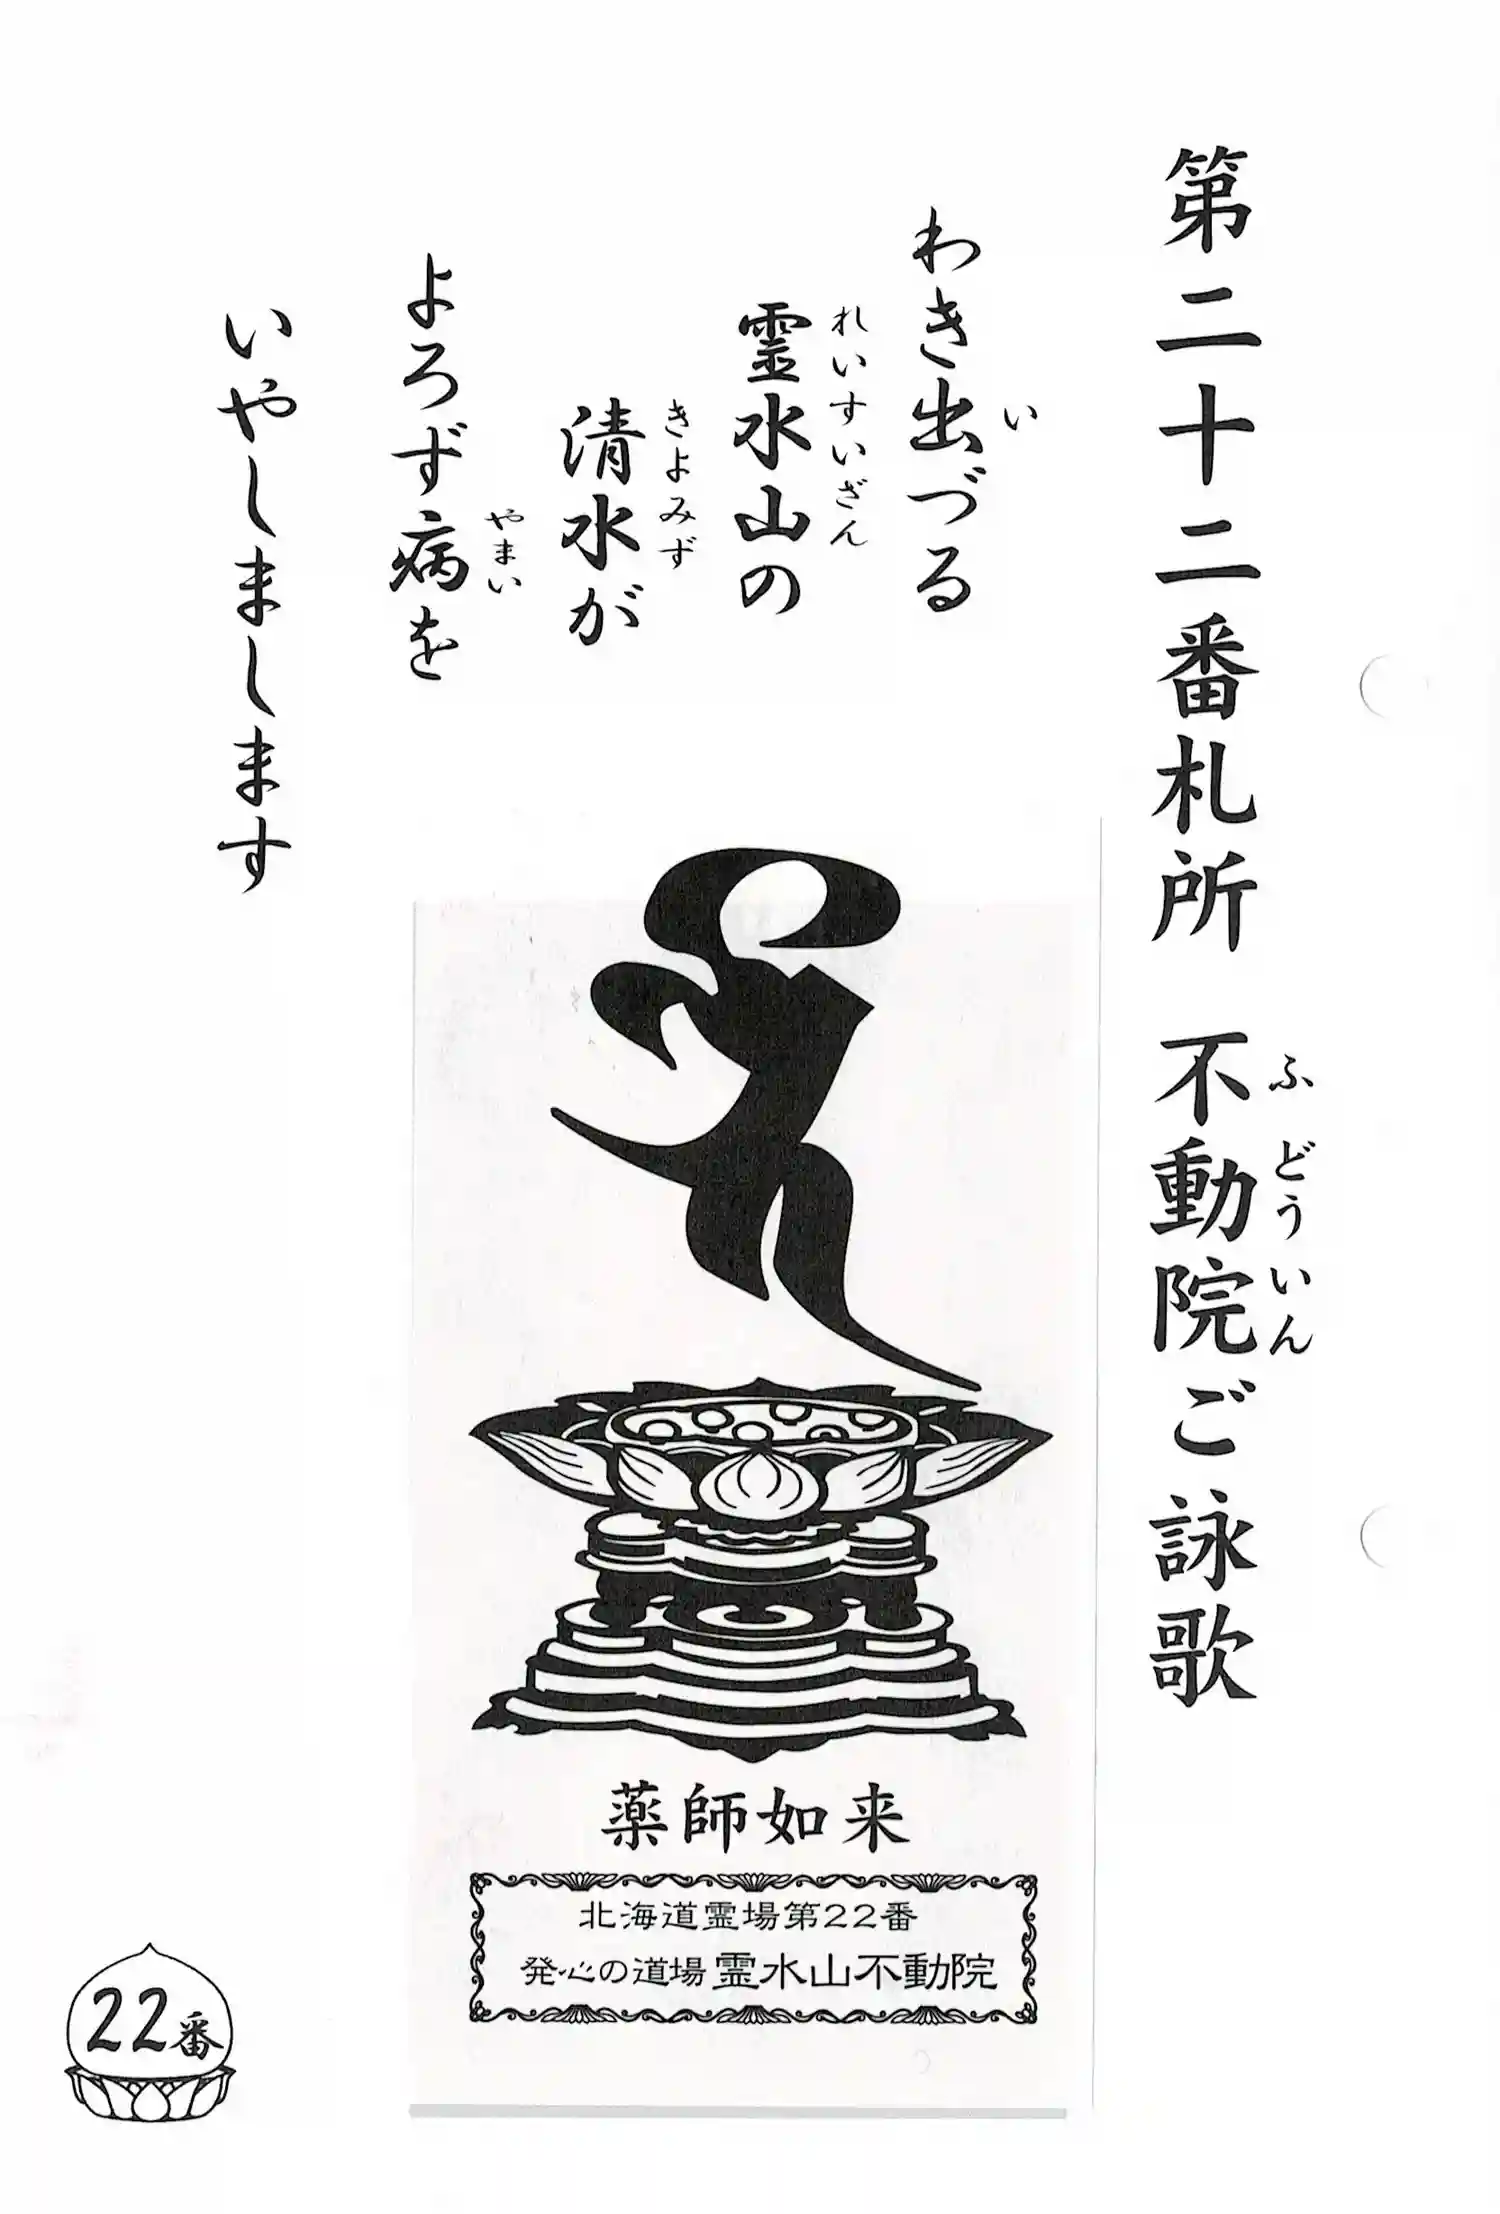 第二十二番札所 不動院ご詠歌
ふどういん
わき出づる
い
霊水山の
れいすいざん
清水が
きよみず
よろず病を
やまい
いやしまします
薬師如来
北海道霊場第22番
発心の道場 霊水山不動院
22番